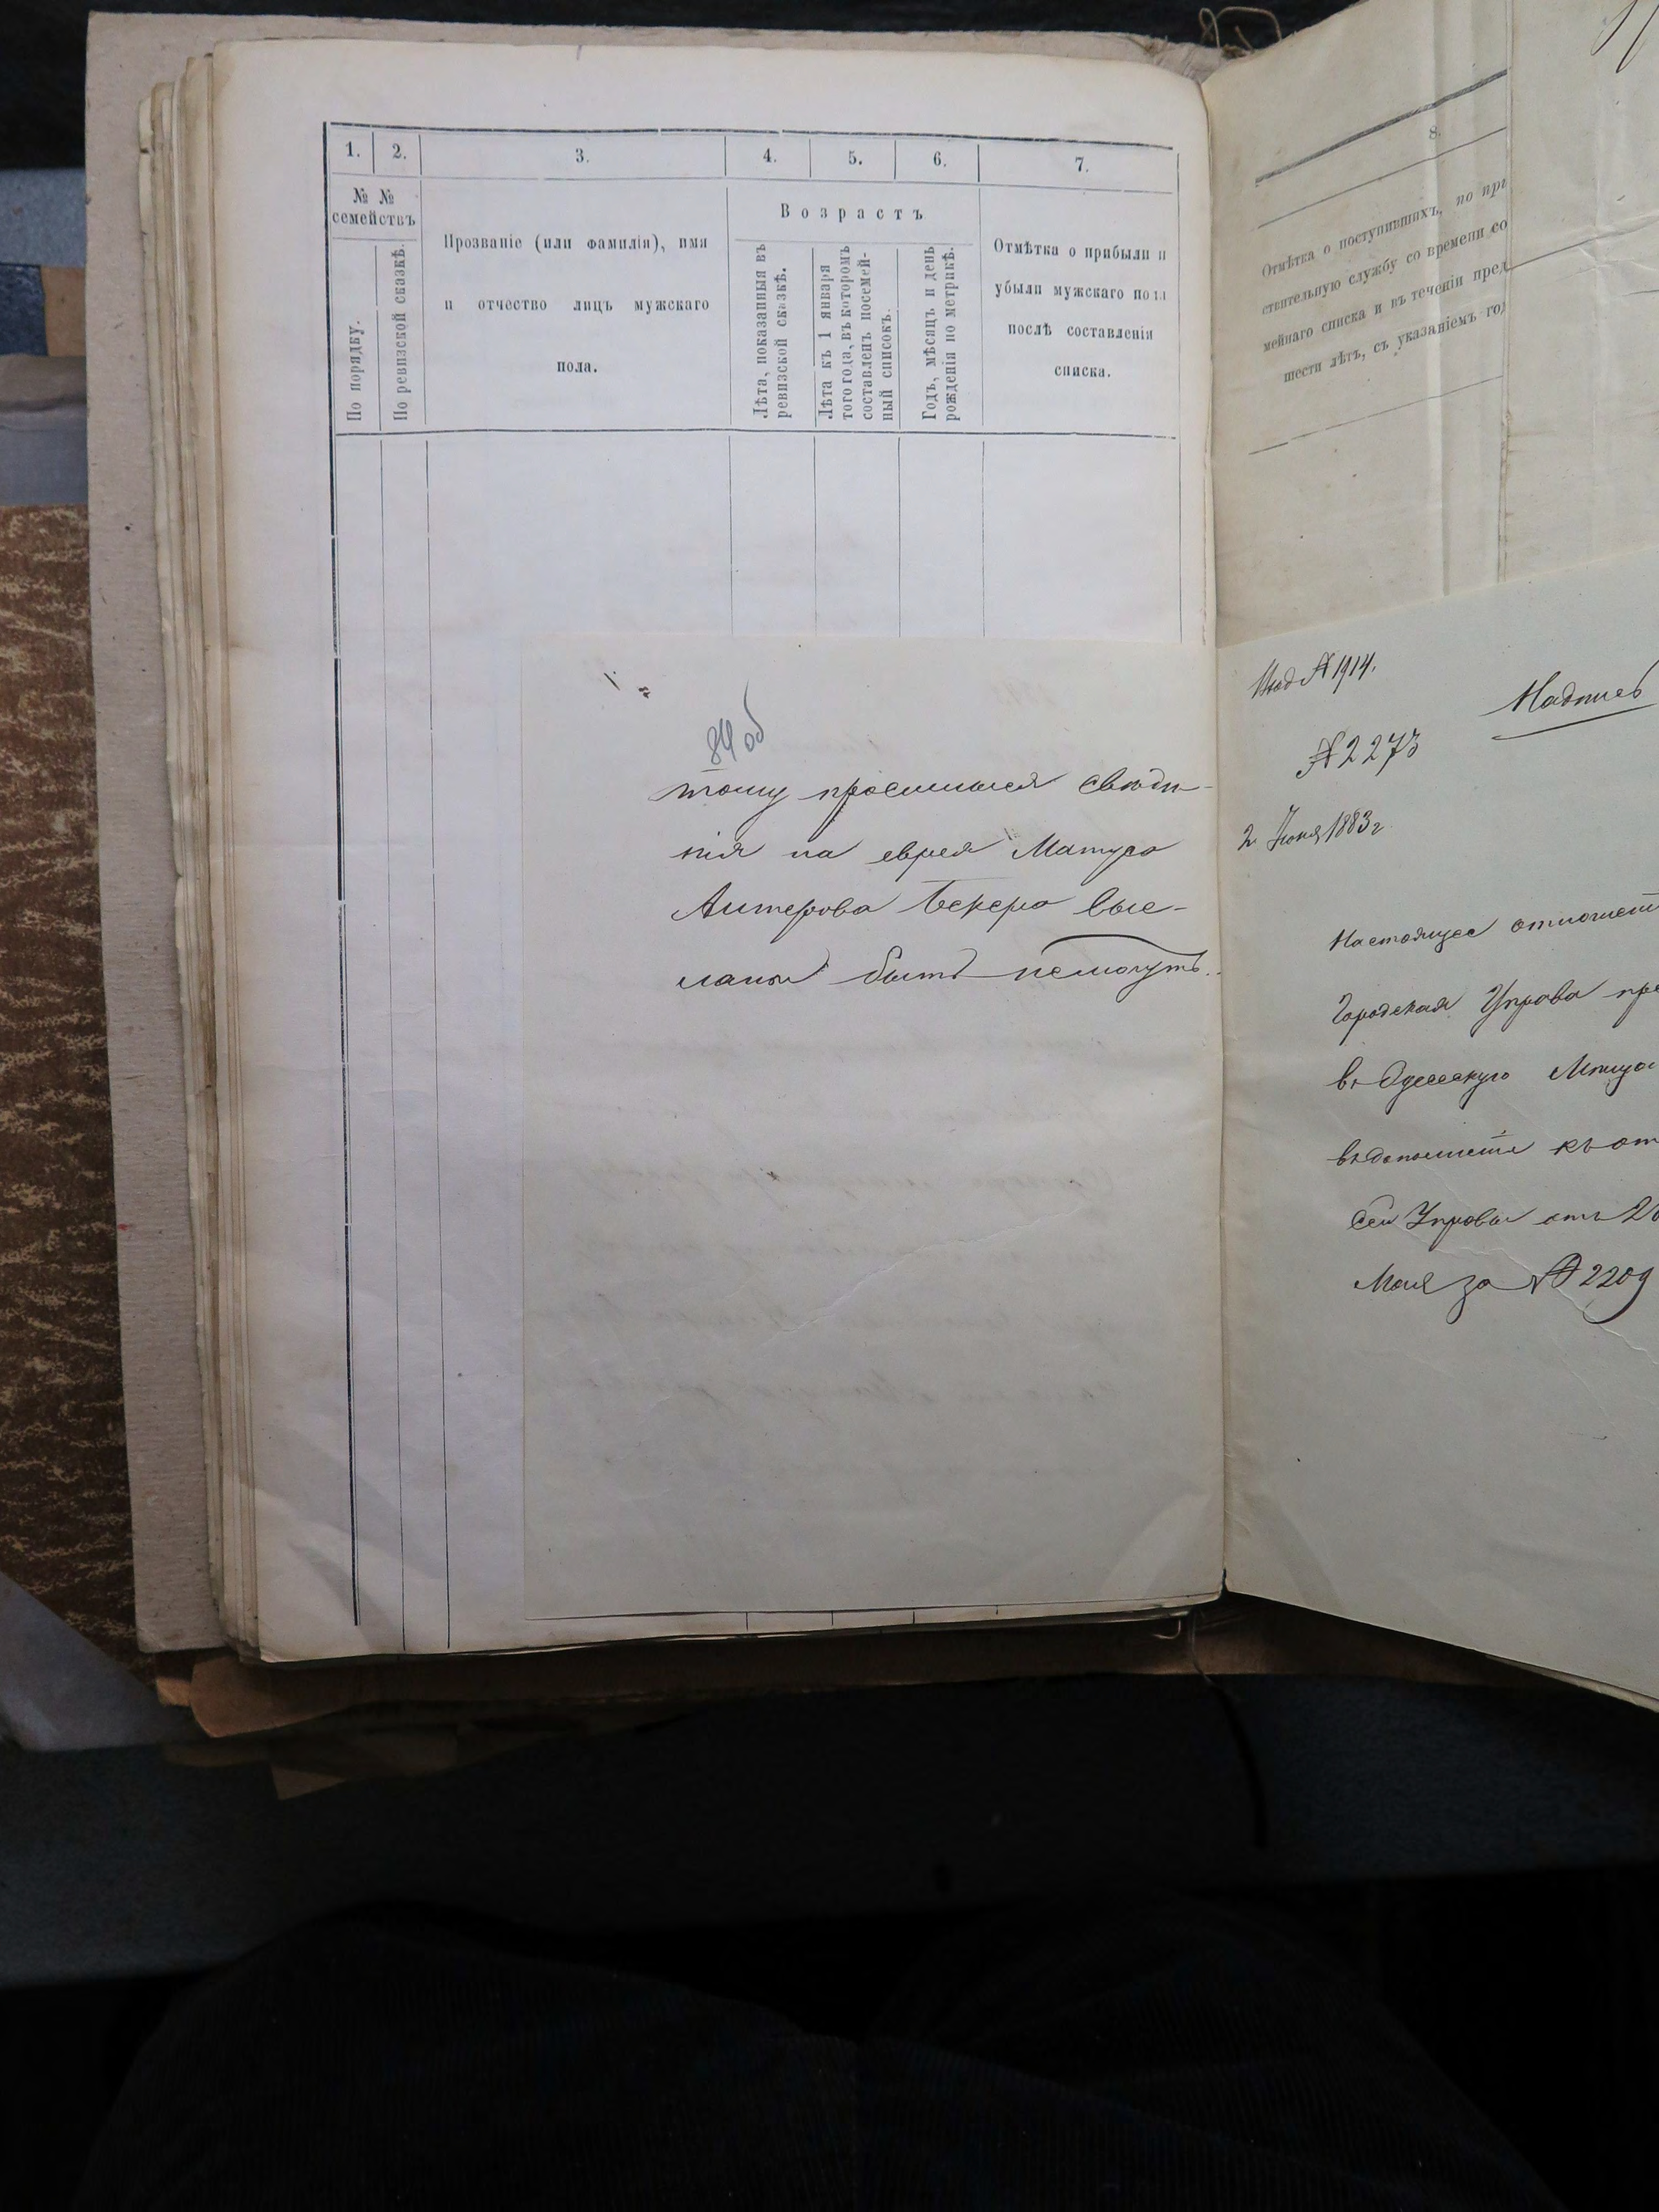 1. 2. 3. 4. 5. 6. 7.
№ № семействъ
По порядку.
По ревизской сказкѣ.
Прозваніе (или фамилія), имя
и отчество лицъ мужскаго
пола.
Возрастъ
Лѣта, показанныя въ
ревизской сказкѣ.
Лѣта къ 1 января
того года, въ которомъ
составленъ посемей-
ный списокъ.
Годъ, мѣсяцъ и день
рожденія по метрикѣ.
Отмѣтка о прибыли и
убыли мужскаго пола
послѣ составленія
списка.
84 об
тому просимыя свѣдѣ-
нія на еврея Матуса
Антерова Бекера выс-
ланы быть немогутъ.
8.
Отмѣтка о поступившихъ, по при
ствительную службу со времени со
мейнаго списка и въ теченіи пред
шести лѣтъ, съ указаніемъ год
№ 1914.
Надпись
№ 2273
2 Іюня 1883 г
Настоящее отношеніе
Городская Управа пре
въ Одесскую Мѣща
въ дополненіе къ от
сей Управы отъ 2
Мая за № 2209